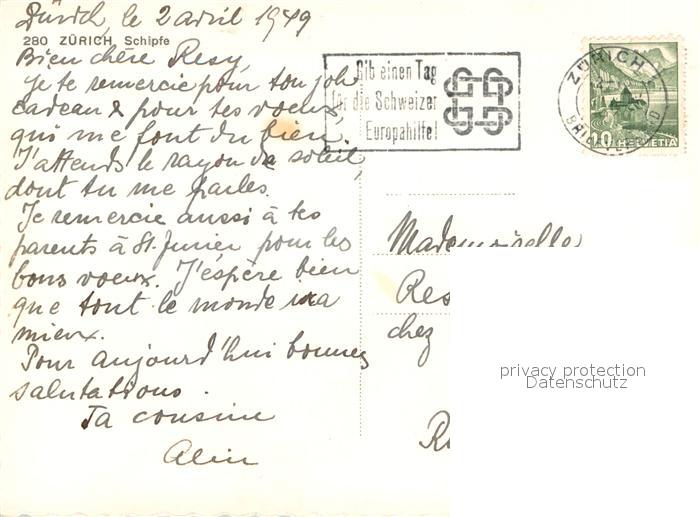 Zürich, le 2 avril 1949
280 ZÜRICH, Schipfe
Bien chère Resy
Je te remercie pour ton joli
cadeau & pour tes voeux,
qui me font du bien.
J'attends le rayon de soleil,
dont tu me parles.
Je remercie aussi à tes
parents à St. Junier pour les
bons voeux. J'éspère bien
que tout le monde ira
mieux.
Pour aujourd'hui bonnes
salutations.
Ta cousine
Gib einen Tag
für die Schweizer
Europahilfe!
ZÜRICH
BRIEFVERSAND
10 HELVETIA
Mademoiselle
Res
chez
R
privacy protection
Datenschutz